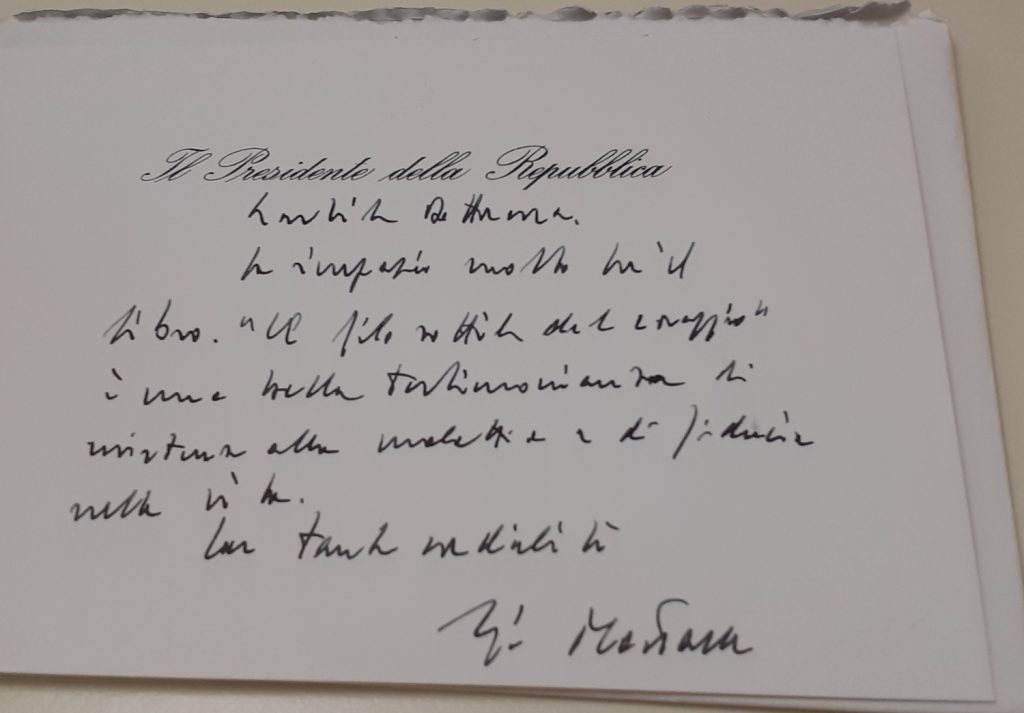 Il Presidente della Repubblica
Gentile Dottoressa,
la ringrazio molto per il
libro. "Il filo sottile del coraggio"
è una bella testimonianza di
resistenza alla malattia e di fiducia
nella vita.
Con tanta cordialità
Mattarella